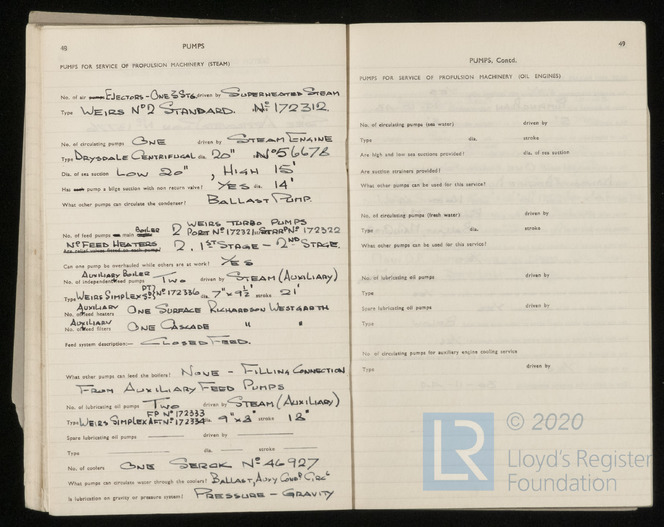 48
PUMPS
PUMPS FOR SERVICE OF PROPULSION MACHINERY (STEAM)
No. of air EJECTORS - ONE 3 STG. driven by SUPERHEATED STEAM
Type WEIRS Nº 2 STANDARD. Nº 172312.
No. of circulating pumps ONE driven by STEAM ENGINE
Type DRYSDALE CENTRIFUGAL dia. 20" Nº 56678
Dia. of sea suction LOW 20", HIGH 15"
Has pump a bilge suction with non return valve? YES dia. 14"
What other pumps can circulate the condenser? BALLAST PUMP.
No. of feed pumps main BOILER 2 WEIRS TURBO PUMPS
PORT Nº 172321 STAR Nº 172322
Nº FEED HEATERS 2. 1ST STAGE - 2ND STAGE.
Can one pump be overhauled while others are at work? YES
AUXILIARY BOILER
No. of independent feed pumps TWO driven by STEAM (AUXILIARY)
Type WEIRS SIMPLEX Nº 172336 dia. 7" x 9½" stroke 21"
AUXILIARY
No. of feed heaters ONE SURFACE RICHARDSON WESTGARTH
AUXILIARY
No. of feed filters ONE CASCADE " "
Feed system description:— CLOSED FEED.
What other pumps can feed the boilers? NONE - FILLING CONNECTION
FROM AUXILIARY FEED PUMPS
No. of lubricating oil pumps TWO driven by STEAM (AUXILIARY)
FP Nº 172333
Type WEIRS SIMPLEX AFT Nº 172334 dia. 9" x 8" stroke 18"
Spare lubricating oil pumps — driven by —
Type — dia. — stroke —
No. of coolers ONE SERCK Nº 46927
What pumps can circulate water through the coolers? BALLAST, AUXY COND CIRC
Is lubrication on gravity or pressure system? PRESSURE - GRAVITY
49
PUMPS, Contd.
PUMPS FOR SERVICE OF PROPULSION MACHINERY (OIL ENGINES)
No. of circulating pumps (sea water) driven by
Type dia. stroke
Are high and low sea suctions provided? dia. of sea suction
Are suction strainers provided?
What other pumps can be used for this service?
No. of circulating pumps (fresh water) driven by
Type dia. stroke
What other pumps can be used for this service?
No. of lubricating oil pumps driven by
Type
Spare lubricating oil pumps driven by
Type
No. of circulating pumps for auxiliary engine cooling service
Type driven by
© 2020
LR
Lloyd's Register
Foundation